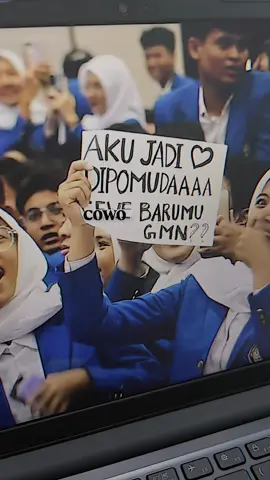 AKU JADI ♡
DIPOMUDAAAA
COWO BARUMU
GMN??